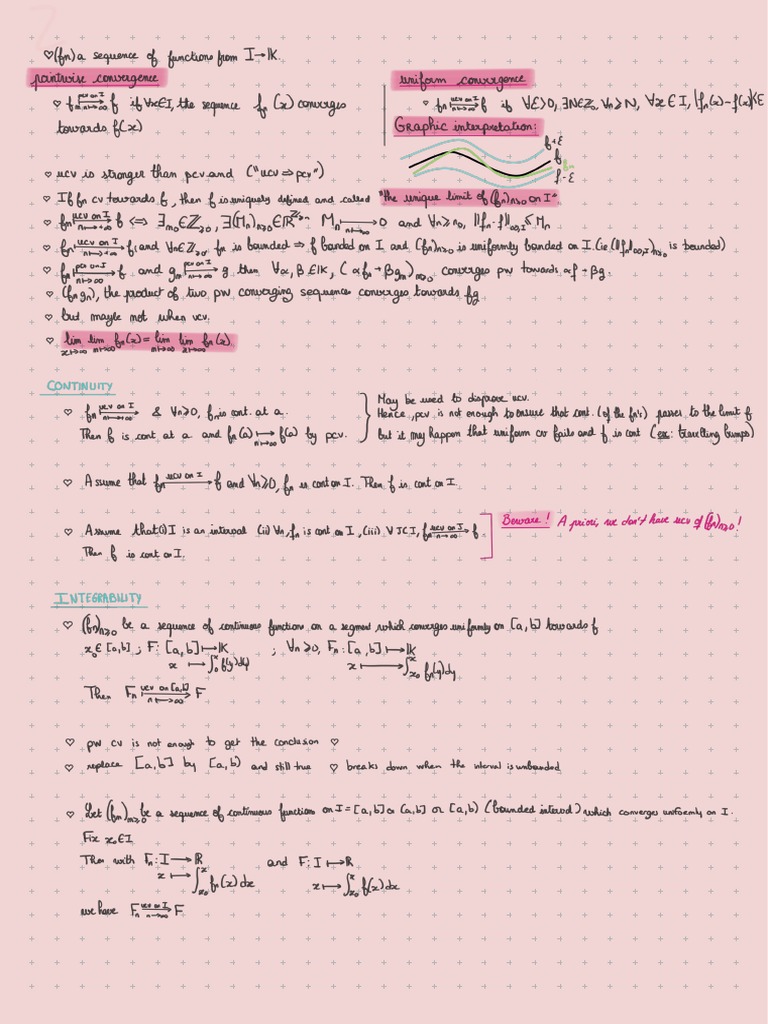 ♡ (fn) a sequence of functions from I→K.
pointwise convergence
♡ fn pcv on I n↦∞ f if ∀x∈I, the sequence fn(x) converges
towards f(x)
uniform convergence
♡ fn ucv on I n↦∞ f if ∀ε>0, ∃N∈Z, ∀n≥N, ∀x∈I, |fn(x)-f(x)|≤ε
Graphic interpretation:
f+ε
f
fn
f-ε
♡ ucv is stronger than pcv and ("ucv ⇒ pcv")
♡ If fn cv towards f, then f is uniquely defined and called "the unique limit of (fn)n≥0 on I"
♡ fn ucv on I n↦+∞ f ⟺ ∃n₀∈Z≥0, ∃(Mn)n≥0∈R Mn n↦∞ 0 and ∀n≥n₀, ||fn-f||∞,I ≤ Mn
♡ fn ucv on I n↦+∞ f and ∀n∈Z≥0, fn is bounded ⇒ f bounded on I and (fn)n≥0 is uniformly bounded on I (ie (||fn||∞,I)n≥0 is bounded)
♡ fn pcv on I n↦∞ f and gn pcv on I n↦∞ g then ∀α,β∈K, (αfn+βgn)n≥0 converges pw towards αf+βg.
♡ (fngn), the product of two pw converging sequences converges towards fg
♡ but maybe not when ucv.
♡ lim x↦∞ lim n↦∞ fn(x) = lim n↦∞ lim x↦∞ fn(x)
CONTINUITY
♡ fn ucv on I n↦+∞ & ∀n≥0, fn is cont. at a.
Then f is cont at a and fn(a) n↦∞ f(a) by pcv.
May be used to disprove ucv.
Hence, pcv is not enough to ensure that cont. (of the fn's) passes to the limit f
but it may happen that uniform cv fails and f is cont (ex: travelling bumps)
♡ Assume that fn ucv on I n↦∞ f and ∀n≥0, fn is cont on I. Then f is cont on I.
♡ Assume that (i) I is an interval (ii) ∀n, fn is cont on I, (iii) ∀J⊂I, fn ucv on J n↦∞ f.
Then f is cont on I.
Beware! A priori, we don't have ucv of (fn)n≥0!
INTEGRABILITY
♡ (fn)n≥0 be a sequence of continuous functions on a segment which converges uniformly on [a,b] towards f
x₀∈[a,b] ; F: [a,b]↦K ; ∀n≥0, Fn: [a,b]↦K
x ↦ ∫ f(y)dy x ↦ ∫ fn(y)dy
Then Fn ucv on [a,b] n↦∞ F
♡ pw cv is not enough to get the conclusion ♡
♡ replace [a,b] by [a,b) and still true ♡ breaks down when the interval is unbounded
♡ Let (fn)n≥0 be a sequence of continuous functions on I=[a,b] or (a,b] or [a,b) (bounded interval) which converges uniformly on I.
Fix x₀∈I
Then with Fn: I→R and F: I↦R
x ↦ ∫ fn(x)dx x ↦ ∫ f(x)dx
we have Fn ucv on I n→∞ F